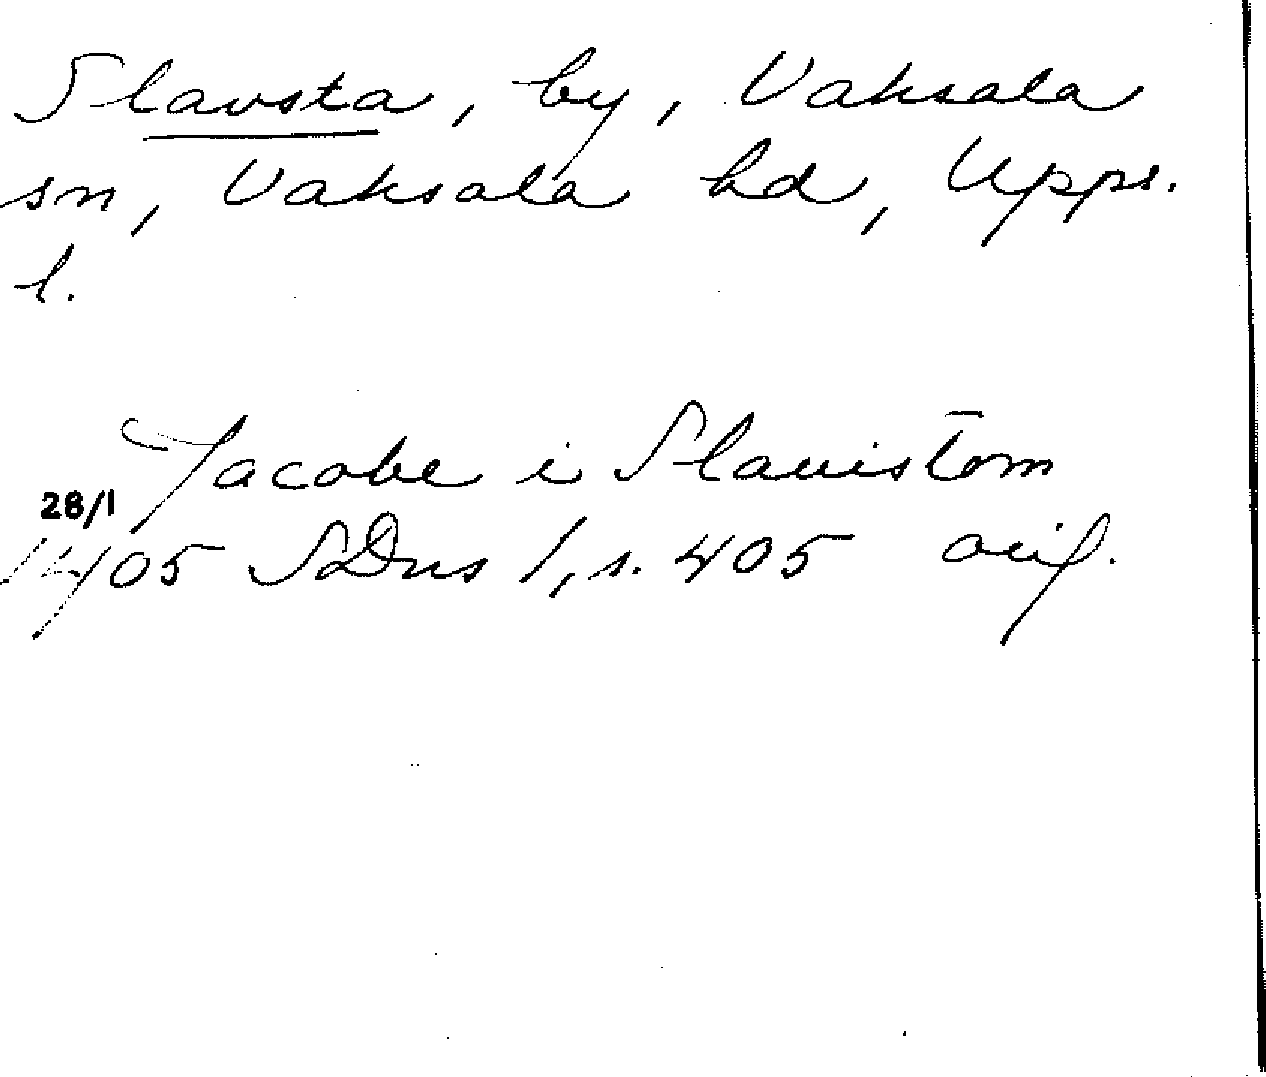 Slavsta, by, Vaksala
sn, Vaksala hd, Upps.
l.
Jacobe i Slauistom̄
28/1
1405 SDns 1, s. 405 avg.